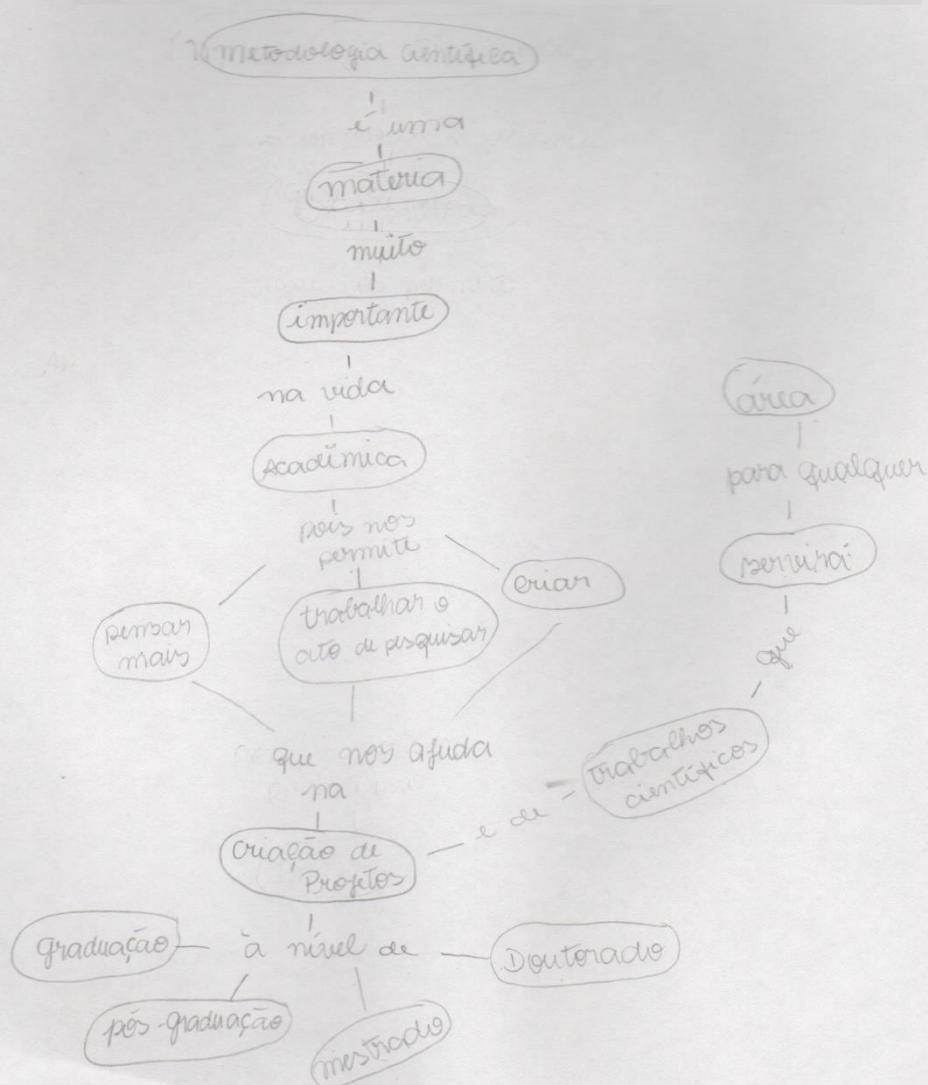 1) metodologia científica
é uma
materia
muito
importante
na vida
Acadêmica
pois nos
permite
pensar
mais
trabalhar o
ato de pesquisar
criar
que nos ajuda
na
criação de
Projetos
e de
trabalhos
científicos
que
servirá
para qualquer
área
à nível de
graduação
pós-graduação
mestrado
Doutorado